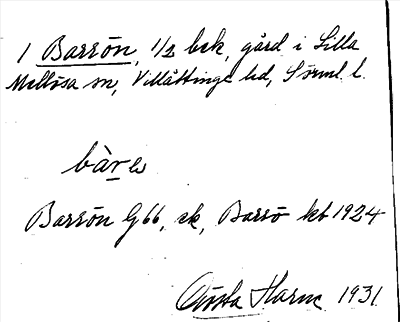 1 Barrön, 1/2 bek, gård i Lilla
Mellösa sn, Villåttinge hd, Sörml. l.
bàrω
Barrön G66, ek, Barrö kb 1924
Gösta Harne 1931